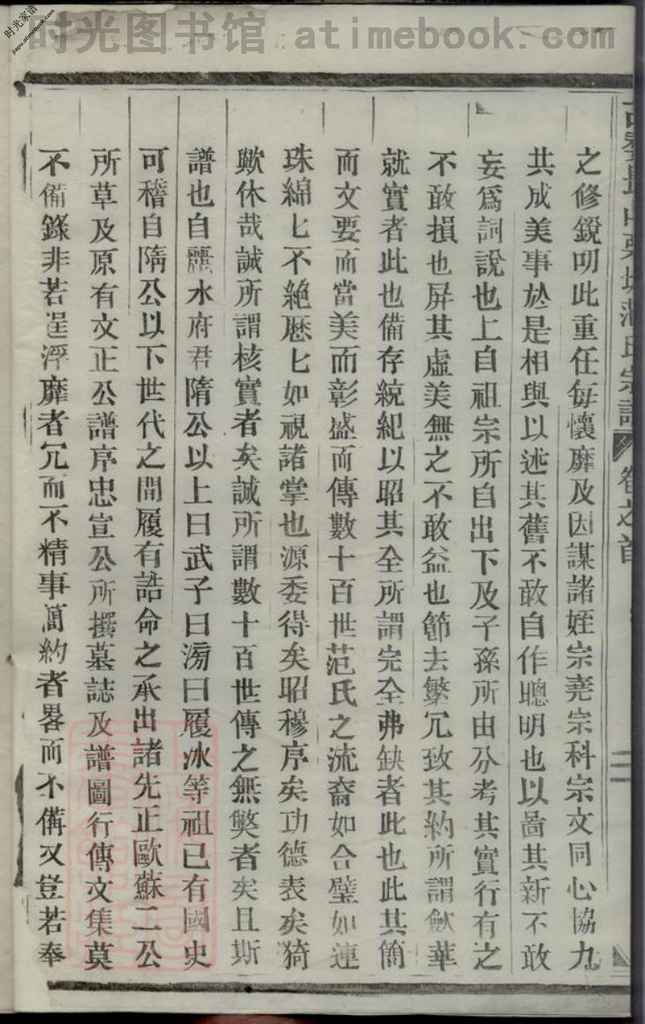 时光图书馆 atimebook.com
时光家谱
氏宗譜 卷之首
之修鋭明此重任每懷靡及因謀諸姪宗堯宗科宗文同心協九
共成美事於是相與以述其舊不敢自作聰明也以啚其新不敢
妄爲詞說也上自祖宗所自出下及子孫所由分考其實行有之
不敢損也屏其虛美無之不敢益也節去繁冗致其約所謂歛華
就實者此也備存統紀以昭其全所謂完全弗缺者此也此其簡
而文要而當美而彰盛而傳數十百世范氏之流裔如合璧如連
珠綿匕不絕歷匕如視諸掌也源委得矣昭穆序矣功德表矣猗
歟休哉誠所謂核實者矣誠所謂數十百世傳之無斁者矣且斯
譜也自麗水府君隋公以上曰武子曰滂曰履冰等祖已有國史
可稽自隋公以下世代之閒履有誥命之承出諸先正歐蘇二公
所草及原有文正公譜序忠宣公所撰墓誌及譜圖行傳文集莫
不備錄非若逞浮靡者冗而不精事萵約者畧而不備又豈若奉